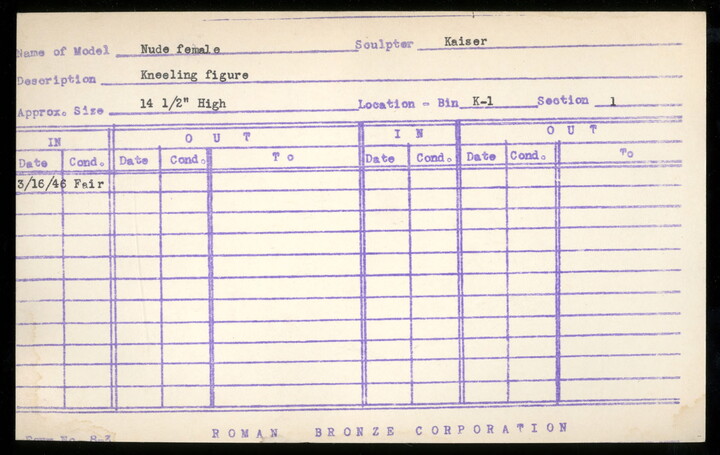 Name of Model Nude female Sculptor Kaiser
Description Kneeling figure
Approx. Size 14 1/2" High Location - Bin K-1 Section 1
IN OUT IN OUT
Date Cond. Date Cond. To Date Cond. Date Cond. To
3/16/46 Fair
Form No. 8-3
ROMAN BRONZE CORPORATION